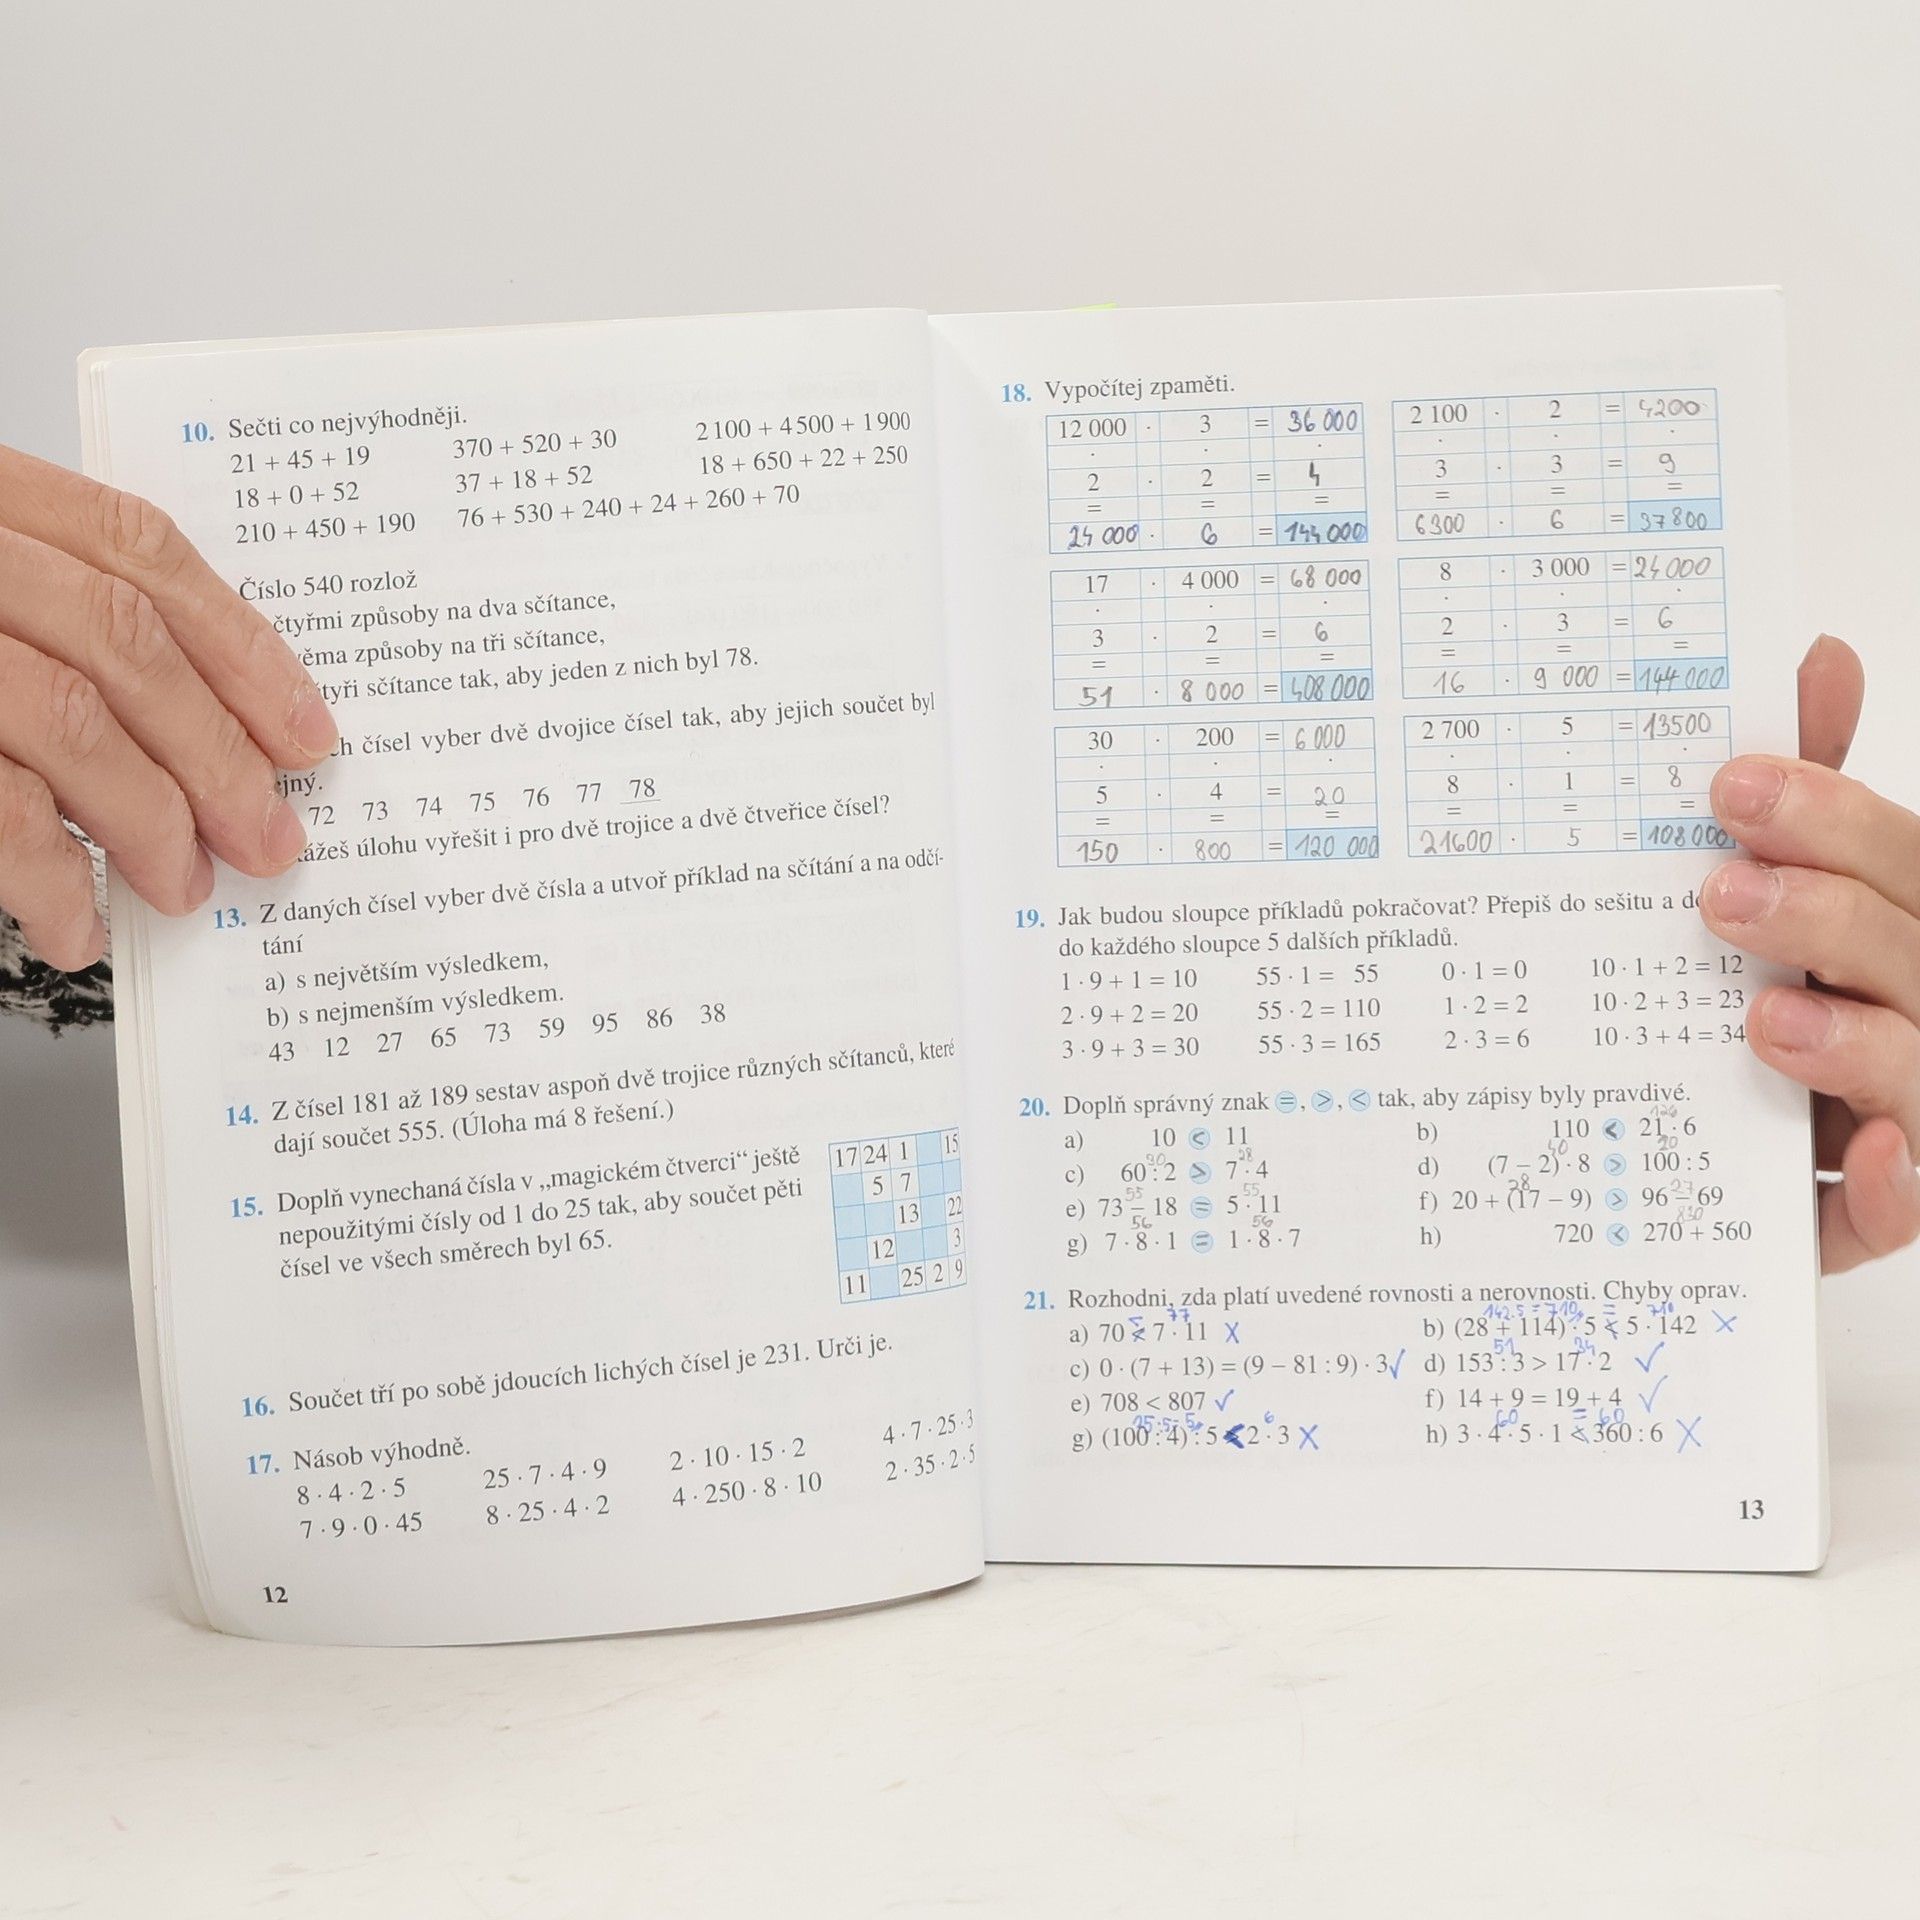 10. Sečti co nejvýhodněji.
21 + 45 + 19 370 + 520 + 30 2 100 + 4 500 + 1 900
18 + 0 + 52 37 + 18 + 52 18 + 650 + 22 + 250
210 + 450 + 190 76 + 530 + 240 + 24 + 260 + 70
Číslo 540 rozlož
čtyřmi způsoby na dva sčítance,
způsoby na tři sčítance,
sčítance tak, aby jeden z nich byl 78.
čísel vyber dvě dvojice čísel tak, aby jejich součet byl
72 73 74 75 76 77 78
úlohu vyřešit i pro dvě trojice a dvě čtveřice čísel?
13. Z daných čísel vyber dvě čísla a utvoř příklad na sčítání a na odčí-
tání
a) s největším výsledkem,
b) s nejmenším výsledkem.
43 12 27 65 73 59 95 86 38
14. Z čísel 181 až 189 sestav aspoň dvě trojice různých sčítanců, které
dají součet 555. (Úloha má 8 řešení.)
15. Doplň vynechaná čísla v „magickém čtverci“ ještě
nepoužitými čísly od 1 do 25 tak, aby součet pěti
čísel ve všech směrech byl 65.
17 24 1 15
5 7
13 22
12 3
11 25 2 9
16. Součet tří po sobě jdoucích lichých čísel je 231. Urči je.
17. Násob výhodně.
8 · 4 · 2 · 5 25 · 7 · 4 · 9 2 · 10 · 15 · 2 4 · 7 · 25 · 3
7 · 9 · 0 · 45 8 · 25 · 4 · 2 4 · 250 · 8 · 10 2 · 35 · 2 · 5
12
18. Vypočítej zpaměti.
12 000 · 3 = 36 000
· · ·
2 · 2 = 4
= = =
24 000 · 6 = 144 000
2 100 · 2 = 4200
· · ·
3 · 3 = 9
= = =
6300 · 6 = 37800
17 · 4 000 = 68 000
· · ·
3 · 2 = 6
= = =
51 · 8 000 = 408 000
8 · 3 000 = 24 000
· · ·
2 · 3 = 6
= = =
16 · 9 000 = 144 000
30 · 200 = 6 000
· · ·
5 · 4 = 20
= = =
150 · 800 = 120 000
2 700 · 5 = 13500
· · ·
8 · 1 = 8
= = =
21600 · 5 = 108 000
19. Jak budou sloupce příkladů pokračovat? Přepiš do sešitu a
do každého sloupce 5 dalších příkladů.
1 · 9 + 1 = 10 55 · 1 = 55 0 · 1 = 0 10 · 1 + 2 = 12
2 · 9 + 2 = 20 55 · 2 = 110 1 · 2 = 2 10 · 2 + 3 = 23
3 · 9 + 3 = 30 55 · 3 = 165 2 · 3 = 6 10 · 3 + 4 = 34
20. Doplň správný znak =, >, < tak, aby zápisy byly pravdivé.
126
a) 10 < 11 b) 110 < 21 · 6
30 28 40 20
c) 60 : 2 > 7 · 4 d) (7 – 2) · 8 > 100 : 5
55 55 28 27
e) 73 – 18 = 5 · 11 f) 20 + (17 – 9) > 96 – 69
56 56 830
g) 7 · 8 · 1 = 1 · 8 · 7 h) 720 < 270 + 560
21. Rozhodni, zda platí uvedené rovnosti a nerovnosti. Chyby oprav.
77 142·5 = 710 = 710
a) 70 < 7 · 11 X b) (28 + 114) · 5 < 5 · 142 X
51 34
c) 0 · (7 + 13) = (9 – 81 : 9) · 3 ✓ d) 153 : 3 > 17 · 2 ✓
e) 708 < 807 ✓ f) 14 + 9 = 19 + 4 ✓
25:5= 5 6 60 = 60
g) (100 : 4) : 5 < 2 · 3 X h) 3 · 4 · 5 · 1 < 360 : 6 X
13